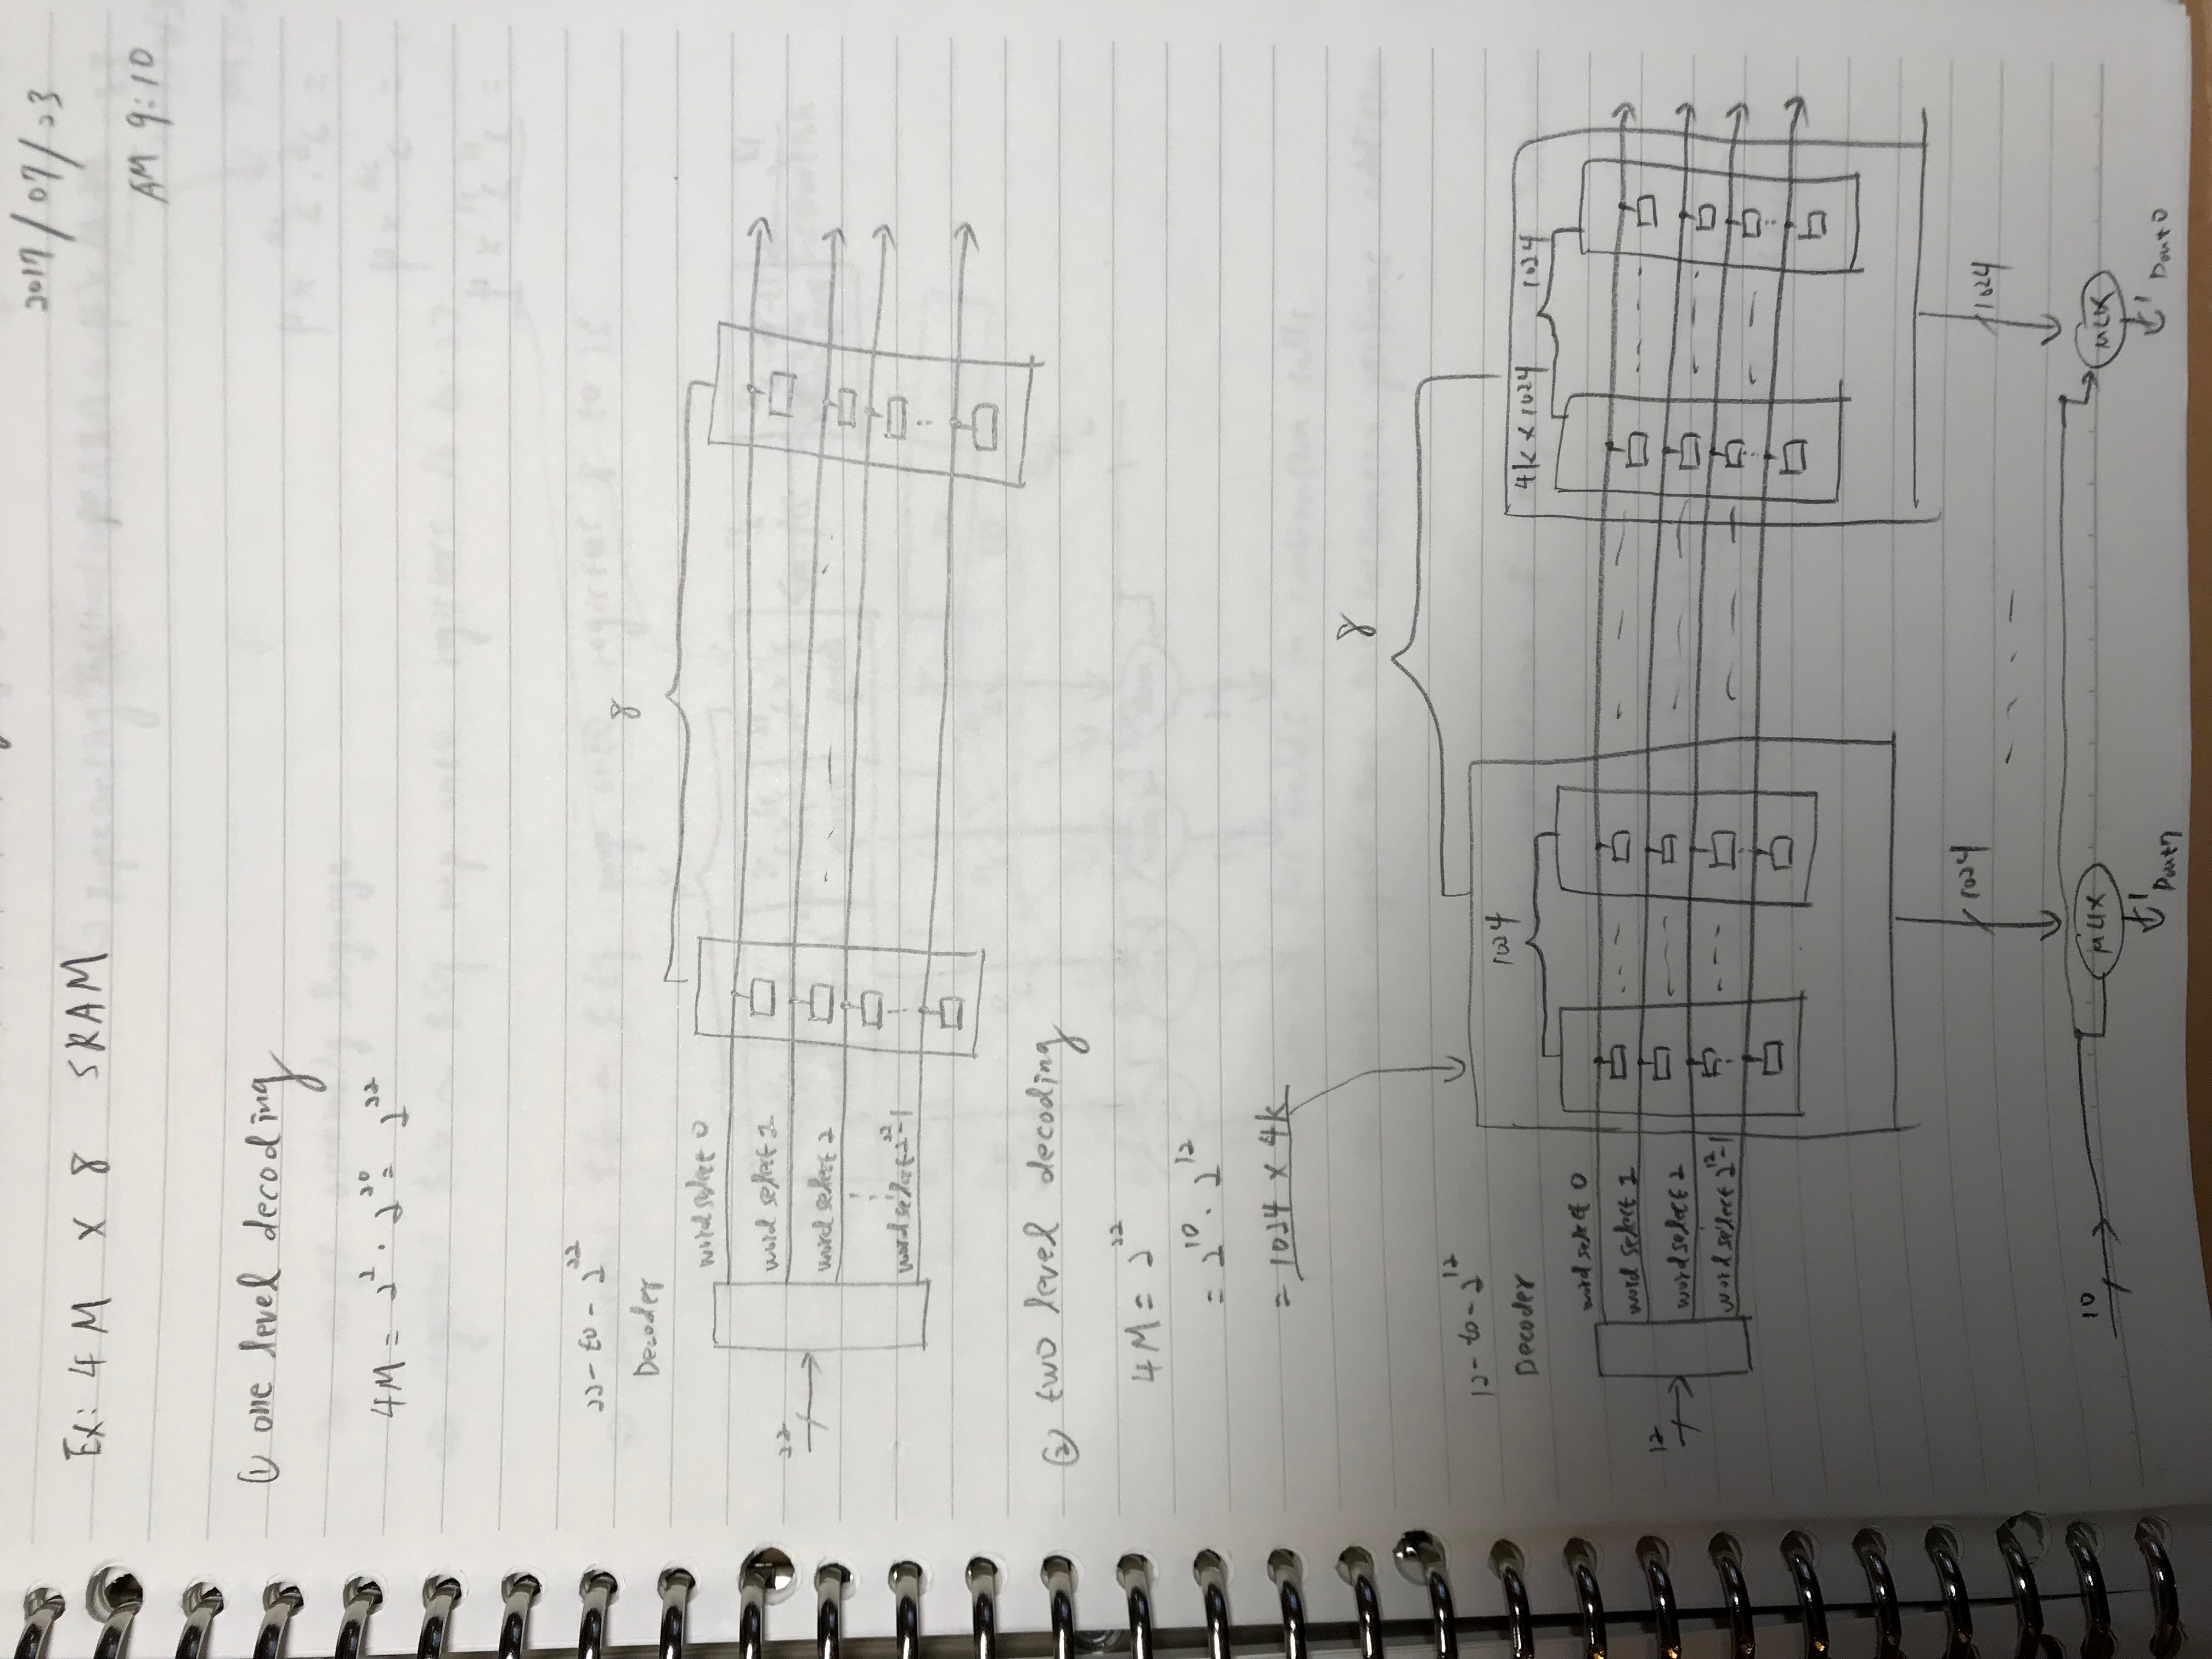 2017/07/23
Ex: 4M x 8 SRAM
AM 9:10
① one level decoding
4M = 2² · 2²⁰ = 2²²
22-to-2²²
Decoder
8
word select 0
word select 1
22
word select 2
word select 2²²-1
② two level decoding
4M = 2²²
= 2¹⁰ · 2¹²
= 1024 x 4k
8
12-to-2¹²
Decoder
1024
4k x 1024
1024
word select 0
word select 1
12
word select 2
word select 2¹²-1
1024
1024
10
MUX
MUX
1
Dout7
1
Dout0